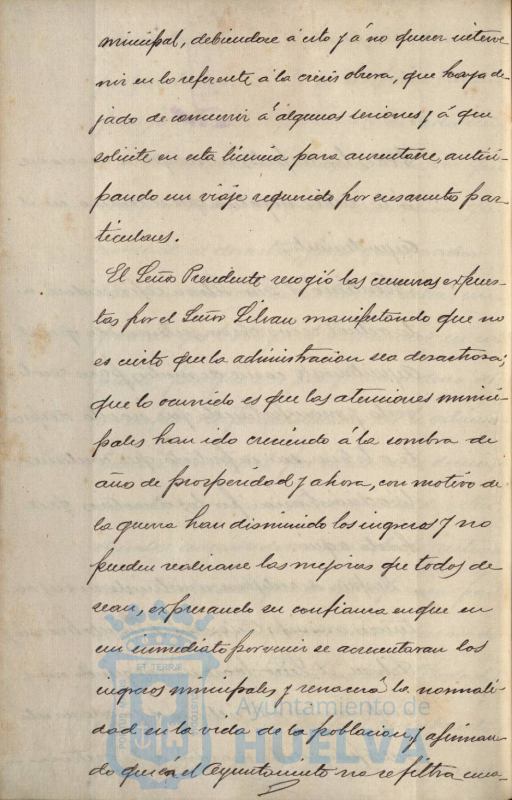 municipal, debiendose á esto y á no querer interve-
nir en lo referente á la crisis obrera, que haya de-
jado de concurrir á algunas sesiones y á que
solicite en esta licencia para ausentarse, antici-
pando un viaje requerido por sus asuntos par-
ticulares.
El Señor Presidente recogió las censuras expues-
tas por el Señor Silvan manifestando que no
es cierto que la administracion sea desastrosa;
que lo ocurrido es que las atenciones munici-
pales han ido creciendo á la sombra de
año de prosperidad y ahora, con motivo de
la guerra han disminuido los ingresos y no
pueden realizarse las mejoras que todos de-
sean, expresando su confianza en que en
un inmediato porvenir se acrecentaran los
ingresos municipales y renacerá la normali-
dad en la vida de la poblacion, y afirman-
do que en el Ayuntamiento no se filtra
ET TERRÆ
Ayuntamiento de
HUELVA